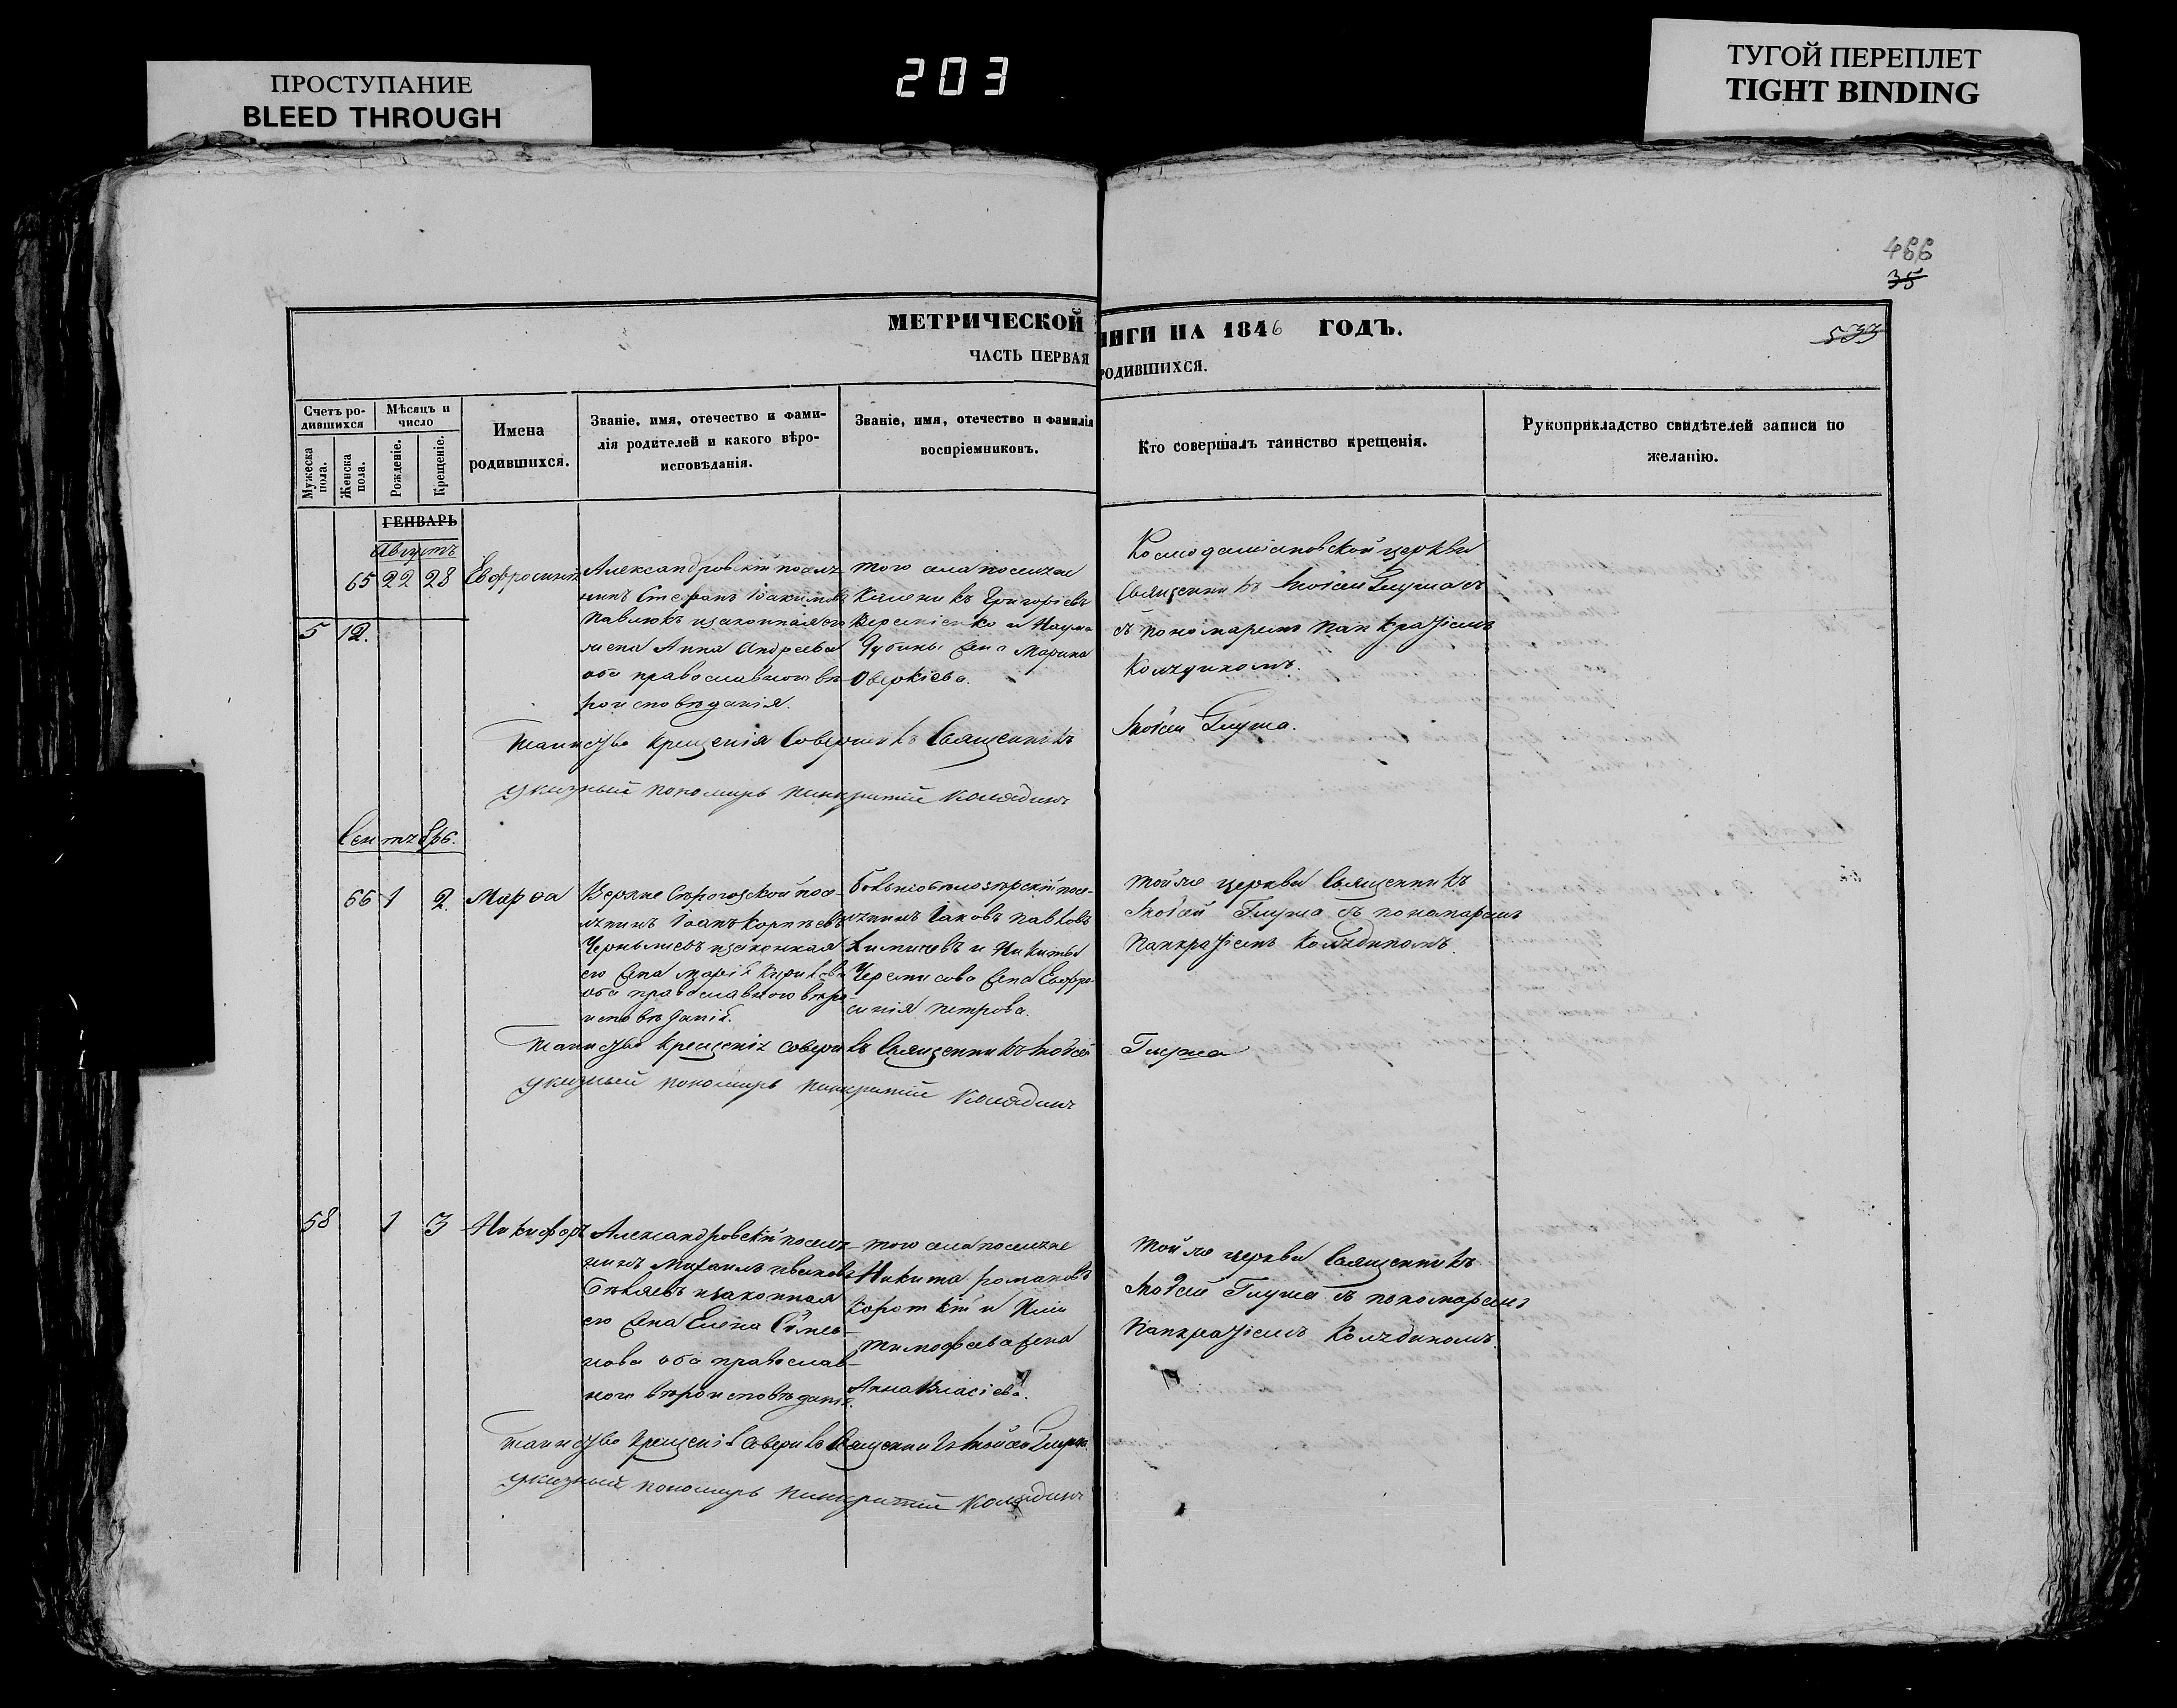 ПРОСТУПАНИЕ
BLEED THROUGH
203
ТУГОЙ ПЕРЕПЛЕТ
TIGHT BINDING
466
35
МЕТРИЧЕСКОЙ
НИГИ НА 1846 ГОДЪ.
ЧАСТЬ ПЕРВАЯ
РОДИВШИХСЯ.
Счетъ ро-
дившихся
Мужеска
пола.
Женска
пола.
Мѣсяцъ и
число
Рожденіе.
Крещеніе.
Имена
родившихся.
Званіе, имя, отечество и фами-
лія родителей и какого вѣро-
исповѣданія.
Званіе, имя, отечество и фамилія
воспріемниковъ.
Кто совершалъ таинство крещенія.
Рукоприкладство свидѣтелей записи по
желанію.
ГЕНВАРЬ
Августъ
65 22 28
5 12.
Евфросинія
Александровскій посел-
нинъ Стефанъ Іакимовъ
Павлюкъ и законная его
жена Анна Андреева
оба православного вѣ-
роисповѣданія.
того села поселяне
Каленикъ Григорьевъ
и Наума
жена Марина
Оверкіева.
Космодаміановской церкви
Священникъ Моѵсей Глужа съ
съ пономаремъ Панкратіемъ
Колядиномъ.
Таинство крещенія совершилъ Священникъ
Моѵсей Глужа.
указный пономарь Панкратій Колядинъ
Сентябрь.
66 1 2
Марѳа
Верхне Сѣрогозской посе-
лянинъ Іоанъ Корнѣевъ
и законная
его жена Марія Кирилова
оба православного вѣро-
исповѣданія.
Большебѣлозѣрскій посе-
лянинъ Іаковъ Павловъ
и Никиты
Черемисова жена Евфро-
синія Петрова.
Той же церкви Священникъ
Моѵсей Глужа съ пономаремъ
Панкратіемъ Колядиномъ.
Таинство крещенія соверилъ Священникъ Моѵсей
Глужа
указный пономарь Панкратій Колядинъ
58 1 3
Никифоръ
Александровскій поселя-
нинъ Михаилъ Ивановъ
Бѣляевъ и законная
его жена Елена Сѵмео-
нова оба православ-
ного вѣроисповѣданія.
того села поселяне
Никита Романовъ
Короткій и Иліи
Тимофеева жена
Анна Власіева.
Той же церкви Священникъ
Моѵсей Глужа съ пономаремъ
Панкратіемъ Колядиномъ.
Таинство крещенія соверилъ Священникъ Моѵсей Глужа.
указный пономарь Панкратій Колядинъ